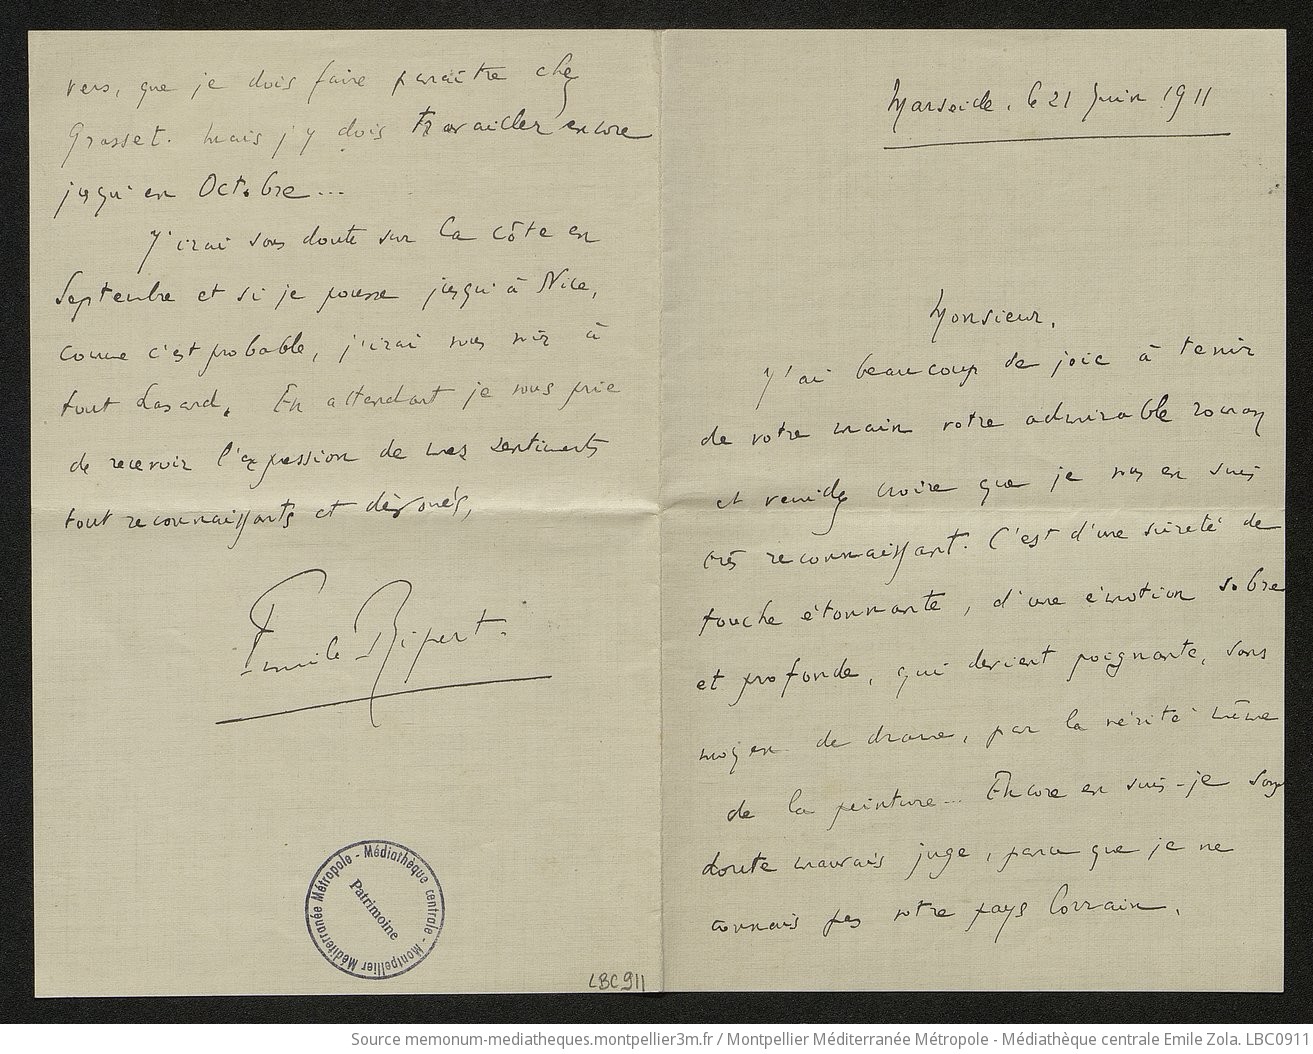 Marseille, le 21 Juin 1911
Monsieur,
J'ai beaucoup de joie à tenir
de votre main votre admirable roman
et veuillez croire que je vous en suis
très reconnaissant. C'est d'une sûreté de
touche étonnante, d'une émotion sobre
et profonde, qui devient poignante, sans
moyen de drame, par la vérité même
de la peinture... Encore en suis-je sans
doute mauvais juge, parce que je ne
connais pas votre pays lorrain,
vers, que je dois faire paraître chez
Grasset. Mais j'y dois travailler encore
jusqu'en Octobre...
J'irai sans doute sur la côte en
Septembre et si je pousse jusqu'à Nice,
comme c'est probable, j'irai vous voir à
tout hasard. En attendant je vous prie
de recevoir l'expression de mes sentiments
tout reconnaissants et dévoués,
Emile Ripert.
Médiathèque centrale - Montpellier Méditerranée Métropole -
Patrimoine
LBC 911
Source memonum-mediatheques.montpellier3m.fr / Montpellier Méditerranée Métropole - Médiathèque centrale Emile Zola. LBC0911